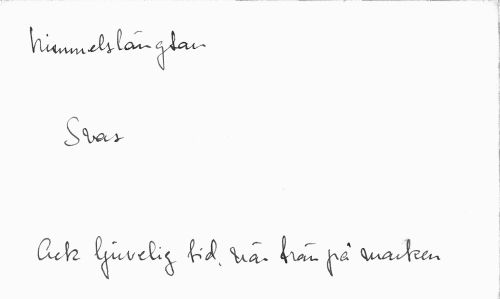 himmelslängtan
Svas
Ack ljuvelig tid, när från på marken